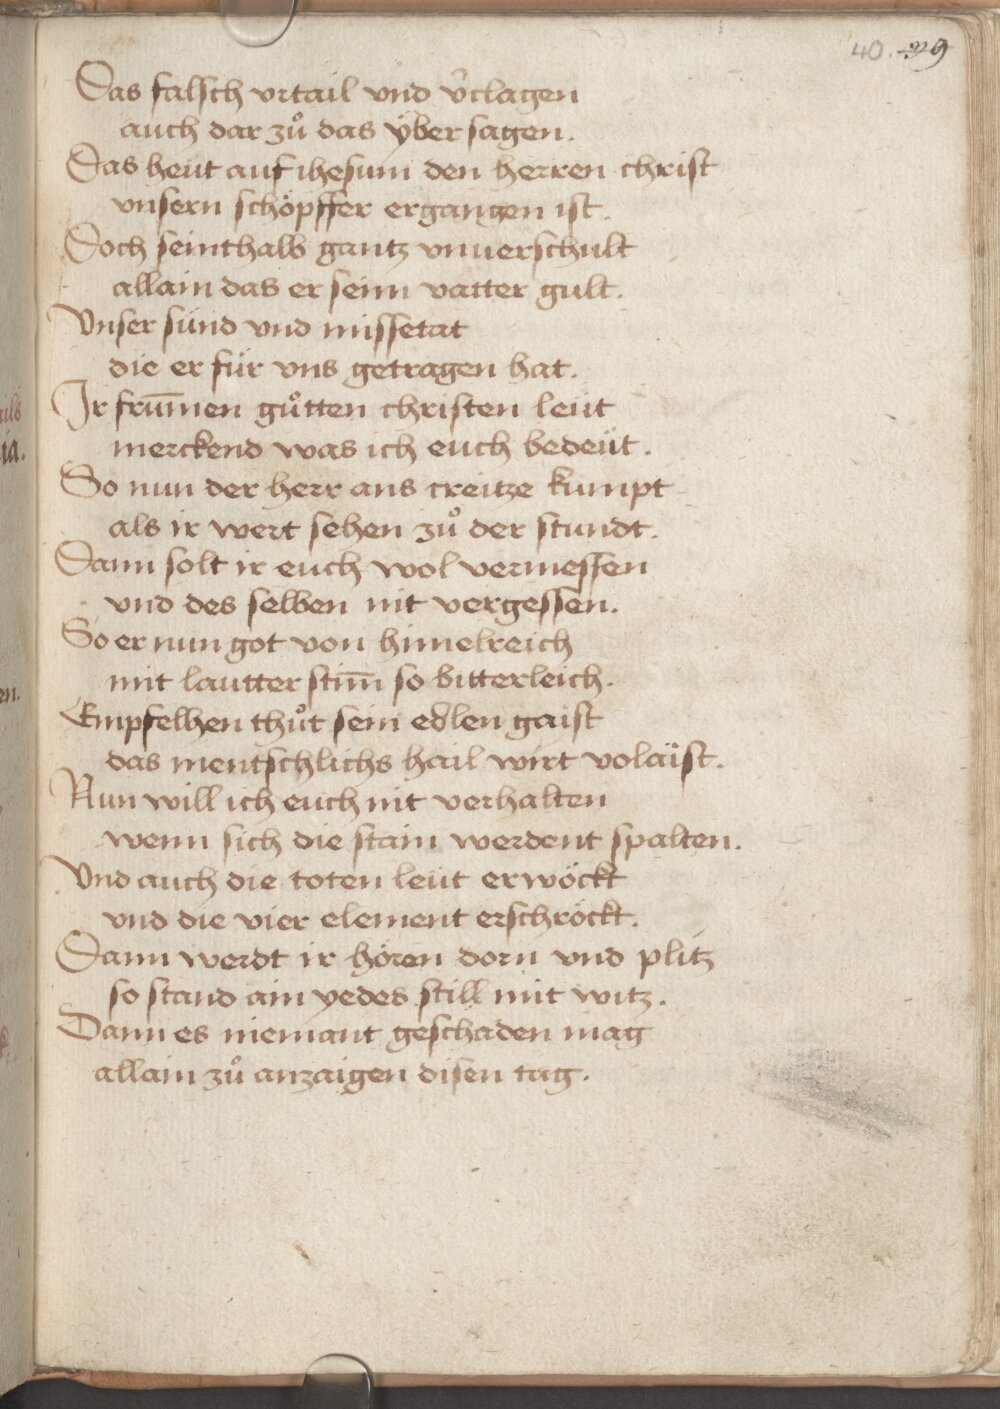 40. 39
Das falsch vrtail vnd v̉clagen
auch dar zů das ÿber sagen.
Das heüt auf ihesum den herren christ
vnsern schöpffer ergangen ist.
Doch seinthalb gantz vnuerschult
allain das er seim vatter gult.
Vnser sünd vnd missetat
die er für vns getragen hat.
Ir frum̄en gůtten christen leüt
merckend was ich euch bedeüt.
So nun der herr ans creitze kumpt
als ir wert sehen zů der stundt.
Dann solt ir euch wol vermessen
vnd des selben nit vergessen.
So er nun got von himelreich
mit lautter stim̄ so bitterleich.
Empfelhen thůt sein edlen gaist
das mentschlichs hail wirt volaist.
Nun will ich euch nit verhalten
wenn sich die stain werdent spalten.
Vnd auch die toten leüt erwöckt
vnd die vier element erschröckt.
Dann werdt ir hören dorn vnd plitz
so stand ain yedes still mit witz.
Dann es niemant geschaden mag
allain zů anzaigen disen tag.
ils
ia.
en.